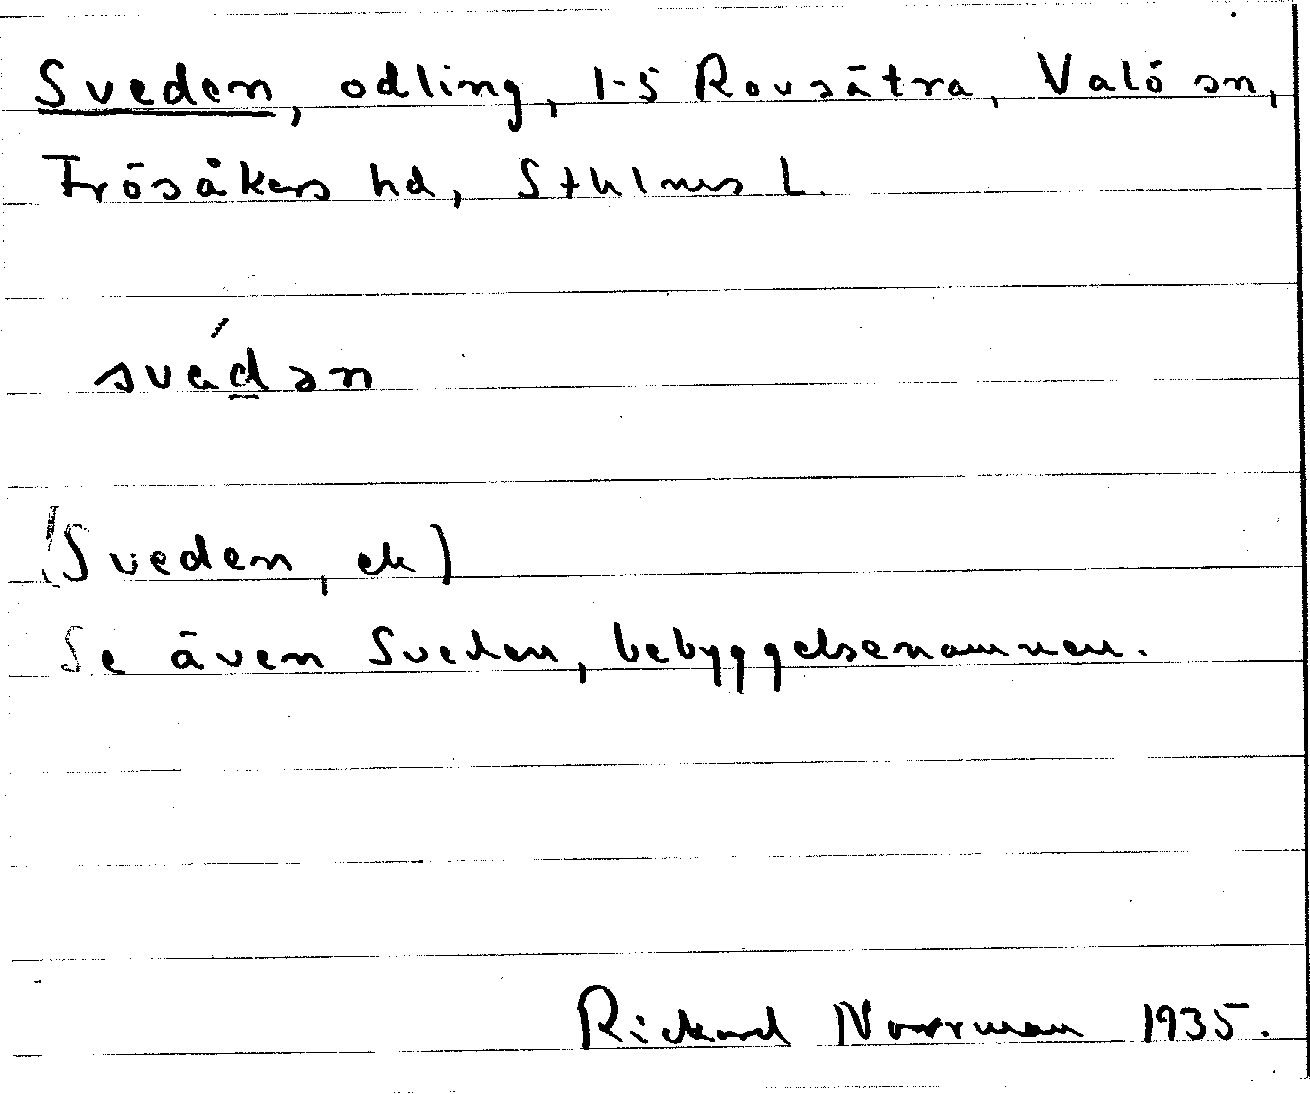 Sveden, odling, 1-5 Rovsätra, Valö sn,
Frösåkers hd, Sthlms L.
svédən
(Sveden, ek)
Se även Sveden, bebyggelsenamnen.
Rickard Norrman 1935.